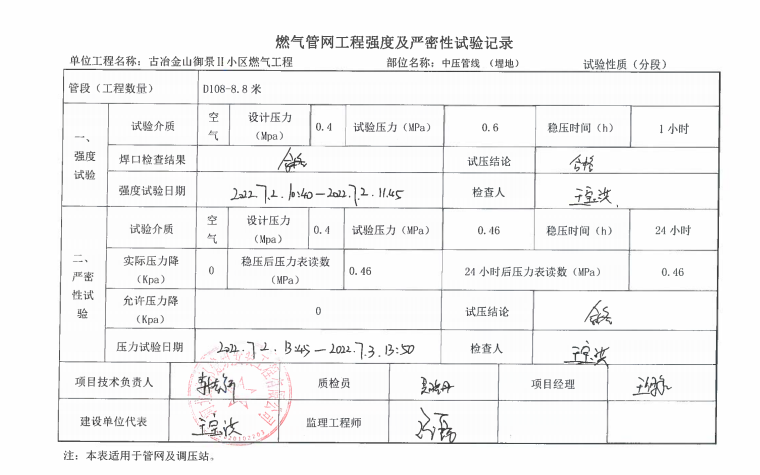 燃气管网工程强度及严密性试验记录
单位工程名称：古冶金山御景Ⅱ小区燃气工程 部位名称：中压管线（埋地） 试验性质（分段）
管段（工程数量） D108-8.8 米
一、强度试验
试验介质 空气 设计压力（Mpa） 0.4 试验压力（MPa） 0.6 稳压时间（h） 1 小时
焊口检查结果 合格 试压结论 合格
强度试验日期 2022.7.2.10:40—2022.7.2.11:45 检查人
二、严密性试验
试验介质 空气 设计压力（Mpa） 0.4 试验压力（MPa） 0.46 稳压时间（h） 24 小时
实际压力降（Kpa） 0 稳压后压力表读数（MPa） 0.46 24 小时后压力表读数（MPa） 0.46
允许压力降（Kpa） 0 试压结论 合格
压力试验日期 2022.7.2.13:45—2022.7.3.13:50 检查人
项目技术负责人 质检员 项目经理
建设单位代表 监理工程师
注：本表适用于管网及调压站。